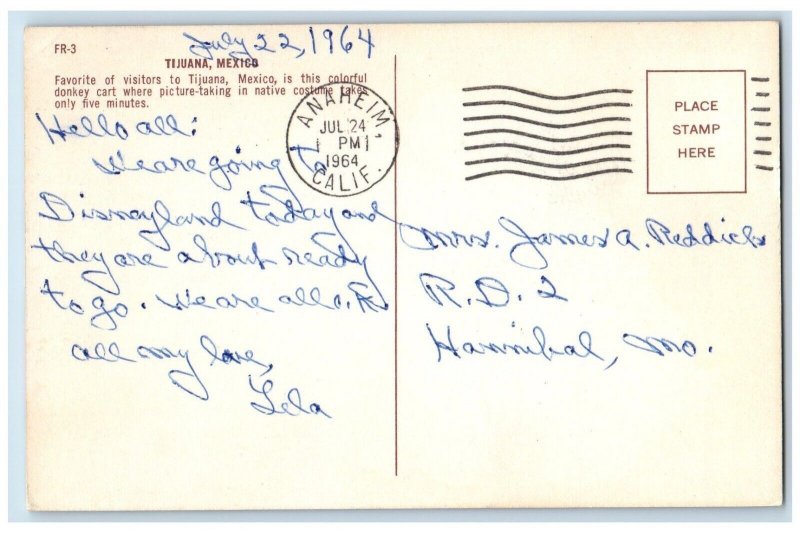 July 22, 1964
FR-3
TIJUANA, MEXICO
Favorite of visitors to Tijuana, Mexico, is this colorful
donkey cart where picture-taking in native costume takes
only five minutes.
ANAHEIM,
JUL 24
1 PM
1964
CALIF.
PLACE
STAMP
HERE
Hello all:
We are going to
Disneyland today and
they are about ready
to go. We are all o.k.
all my love,
Lela
Mrs. James A. Reddick
R.D. 2
Hannibal, Mo.